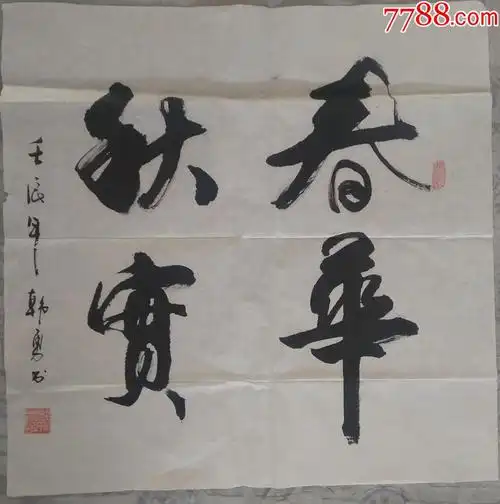 7788.com
春華
秋實
壬辰年韩勇书